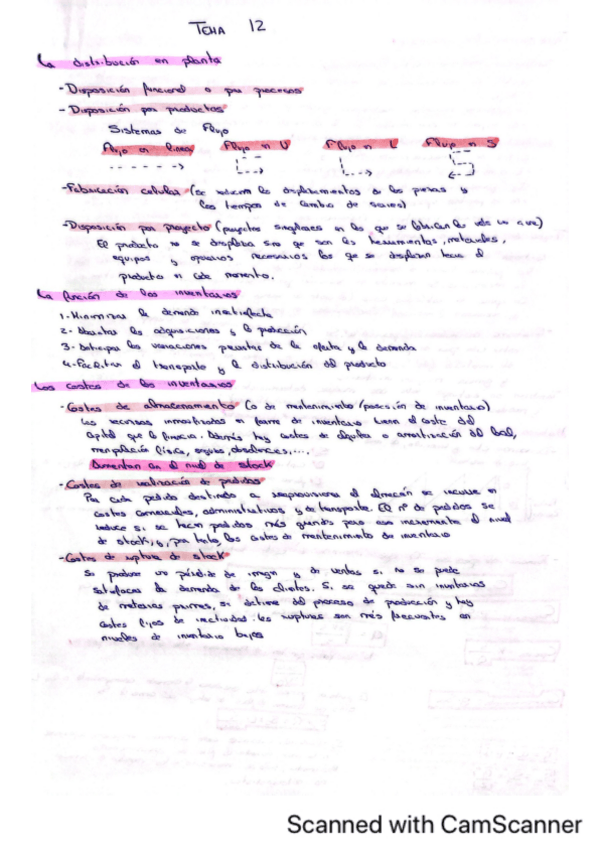 TEMA 12
La distribución en planta
- Disposición funcional o por procesos
- Disposición por productos
Sistemas de Flujo
Flujo en línea Flujo en U Flujo en L Flujo en S
- Fabricación celular (se reducen los desplazamientos de las piezas y
los tiempos de cambio de
- Disposición por proyecto (proyectos singulares en los que se fabrican
El producto no se desplaza sino que son las herramientas, materiales,
equipos y operarios necesarios los que se desplazan hacia el
producto en cada momento.
La función de los inventarios
1. Minimizar la demanda insatisfecha
2. las adquisiciones y la producción
3. Anticipar las variaciones previstas de la oferta y la demanda
4. Facilitar el transporte y la distribución del producto
Los costes de los inventarios
- Costes de almacenamiento (o de mantenimiento/posesión de inventario)
Los recursos inmovilizados en forma de inventario tienen el coste del
capital que lo financia. Además hay costes de alquiler o amortización del local,
manipulación física, seguros, obsolescencias,...
Aumentan con el nivel de stock
- Costes de realización de pedidos
Por cada pedido destinado a reaprovisionar el almacén se incurre en
costes comerciales, administrativos y de transporte. El nº de pedidos se
reduce si se hacen pedidos más grandes pero eso incrementa el nivel
de stock, y, por tanto, los costes de mantenimiento de inventario
- Costes de ruptura de stock
Se produce una pérdida de imagen y de ventas si no se puede
satisfacer la demanda de los clientes. Si se queda sin inventarios
de materias primas, se detiene el proceso de producción y hay
costes fijos de inactividad. Las rupturas son más frecuentes en
niveles de inventario bajos
Scanned with CamScanner